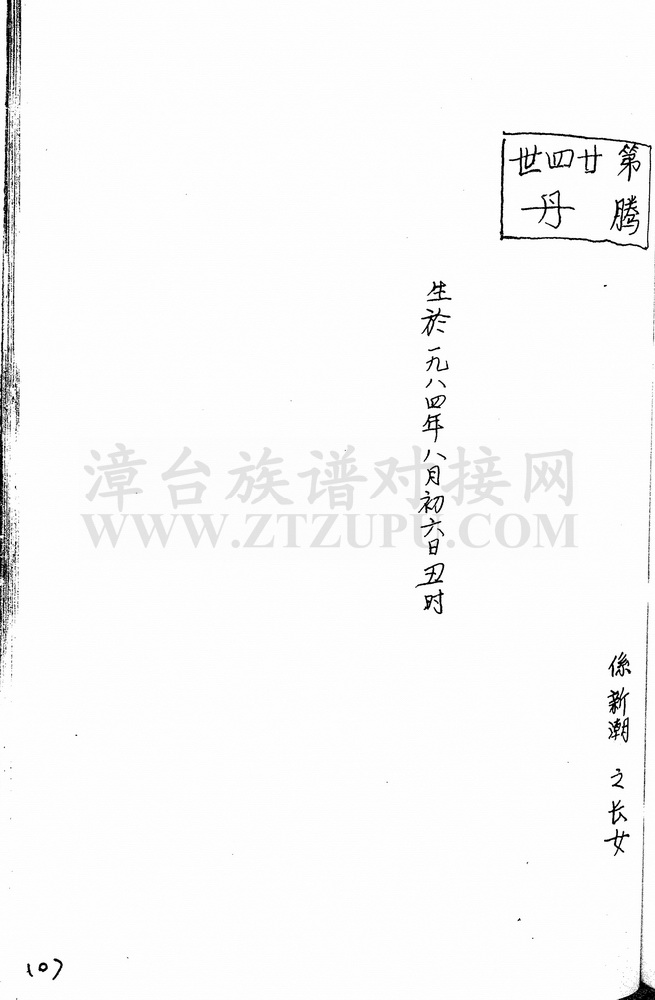 第廿四世
腾丹
生於一九八四年八月初六日丑时
係新潮之长女
漳台族谱对接网
WWW.ZTZUPU.COM
107